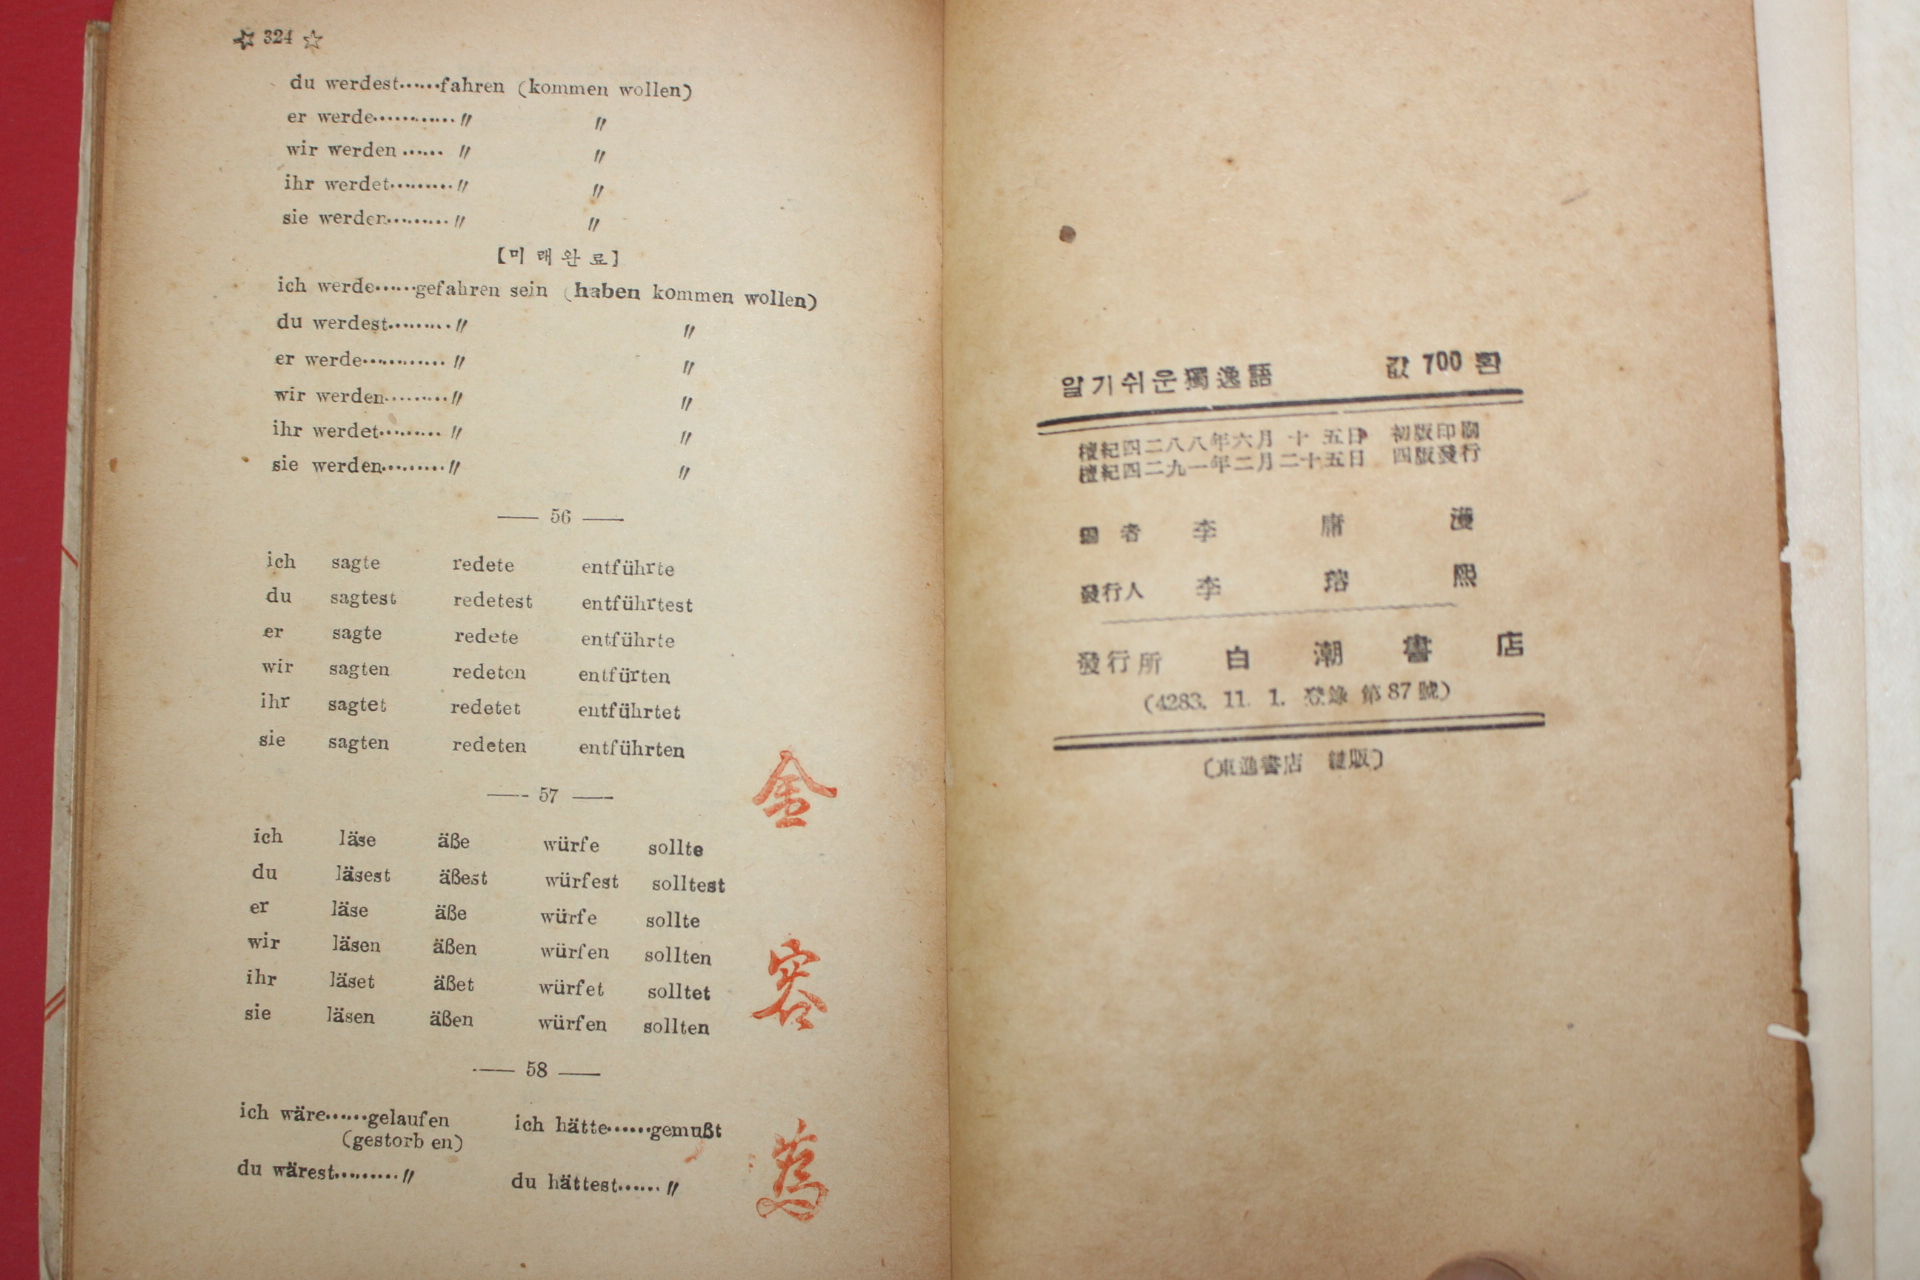 ☆ 324 ☆
du werdest……fahren (kommen wollen)
er werde…………〃 〃
wir werden …… 〃 〃
ihr werdet………〃 〃
sie werden………〃 〃
【미래완료】
ich werde……gefahren sein (haben kommen wollen)
du werdest………〃 〃
er werde………… 〃 〃
wir werden………〃 〃
ihr werdet……… 〃 〃
sie werden………〃 〃
—— 56 ——
ich sagte redete entführte
du sagtest redetest entführtest
er sagte redete entführte
wir sagten redeten entfürten
ihr sagtet redetet entführtet
sie sagten redeten entführten
—— 57 ——
ich läse äße würfe sollte
du läsest äßest würfest solltest
er läse äße würfe sollte
wir läsen äßen würfen sollten
ihr läset äßet würfet solltet
sie läsen äßen würfen sollten
—— 58 ——
ich wäre……gelaufen ich hätte……gemußt
(gestorb en)
du wärest………〃 du hättest……〃
金
容
爲
알기쉬운獨逸語 값 700 환
檀紀四二八八年六月 十 五日 初版印刷
檀紀四二九一年二月二十五日 四版發行
者 李 庸
發行人 李 瑢 熙
發行所 白 潮 書 店
(4283. 11. 1. 登錄 第87號)